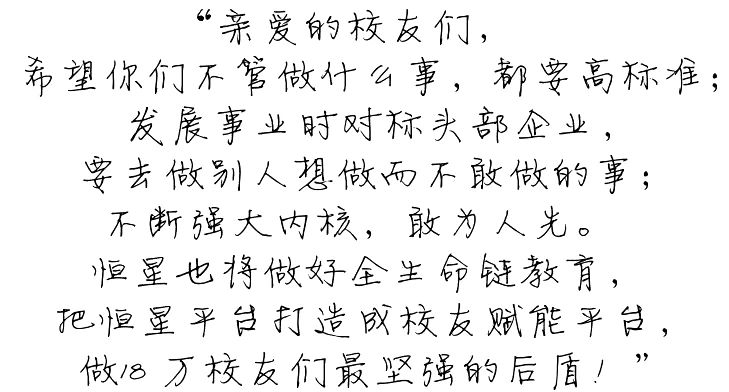 “亲爱的校友们，
希望你们不管做什么事，都要高标准；
发展事业时对标头部企业，
要去做别人想做而不敢做的事；
不断强大内核，敢为人先。
恒星也将做好全生命链教育，
把恒星平台打造成校友赋能平台，
做18万校友们最坚强的后盾！”